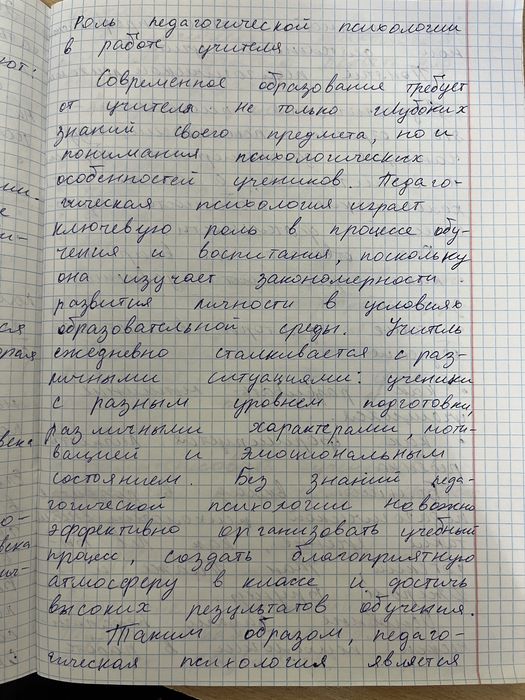 Роль педагогической психологии
в работе учителя
Современное образование требует
от учителя не только глубоких
знаний своего предмета, но и
понимания психологических
особенностей учеников. Педаго-
гическая психология играет
ключевую роль в процессе обу-
чения и воспитания, поскольку
она изучает закономерности
развития личности в условиях
образовательной среды. Учитель
ежедневно сталкивается с раз-
личными ситуациями: ученики
с разным уровнем подготовки,
различными характерами, моти-
вацией и эмоциональным
состоянием. Без знаний педа-
гогической психологии
эффективно организовать учебный
процесс, создать благоприятную
атмосферу в классе и достичь
высоких результатов обучения.
Таким образом, педаго-
гическая психология является